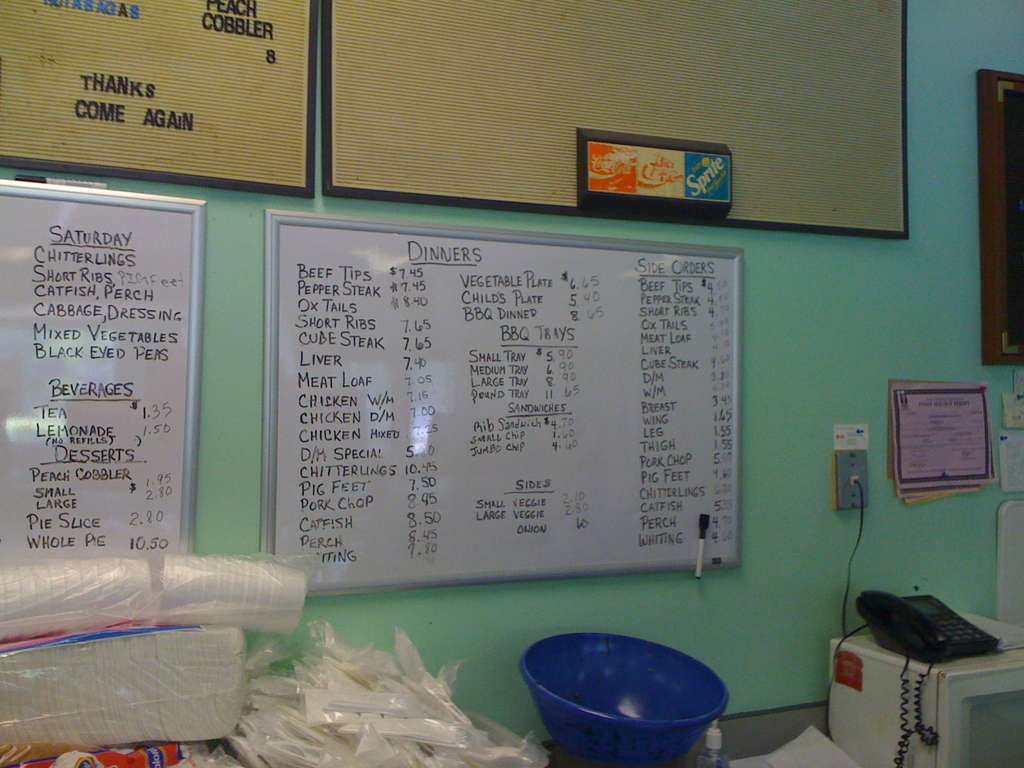 PEACH
COBBLER
8
THANKS
COME AGAIN
Sprite
SATURDAY
CHITTERLINGS
SHORT RIBS, PIGS Feet
CATFISH, PERCH
CABBAGE, DRESSING
MIXED VEGETABLES
BLACK EYED PEAS
BEVERAGES
TEA $1.35
LEMONADE 1.50
(NO REFILLS)
DESSERTS
PEACH COBBLER
SMALL $1.95
LARGE 2.80
PIE SLICE 2.80
WHOLE PIE 10.50
DINNERS
BEEF TIPS $7.45
PEPPER STEAK $7.45
OX TAILS $8.40
SHORT RIBS 7.65
CUBE STEAK 7.65
LIVER 7.40
MEAT LOAF 7.05
CHICKEN W/M 7.15
CHICKEN D/M 7.00
CHICKEN MIXED 7.25
D/M SPECIAL
CHITTERLINGS 10.45
PIG FEET 7.50
PORK CHOP 8.45
CATFISH 8.50
PERCH 8.45
WHITING 7.80
VEGETABLE PLATE $6.65
CHILD'S PLATE 5.40
BBQ DINNER 8.65
BBQ TRAYS
SMALL TRAY $5.90
MEDIUM TRAY 6.90
LARGE TRAY 8.90
POUND TRAY 11.65
SANDWICHES
Rib Sandwich $4.70
SMALL CHIP 1.60
JUMBO CHIP 4.60
SIDES
SMALL VEGGIE 2.10
LARGE VEGGIE 2.80
ONION 60
SIDE ORDERS
BEEF TIPS $4.
PEPPER STEAK 4.
SHORT RIBS 4.
OX TAILS
MEAT LOAF
LIVER
CUBE STEAK 4.60
D/M
W/M
BREAST 3.45
WING 1.65
LEG 1.55
THIGH 1.55
PORK CHOP
PIG FEET 4.60
CHITTERLINGS
CATFISH
PERCH
WHITING 4.60